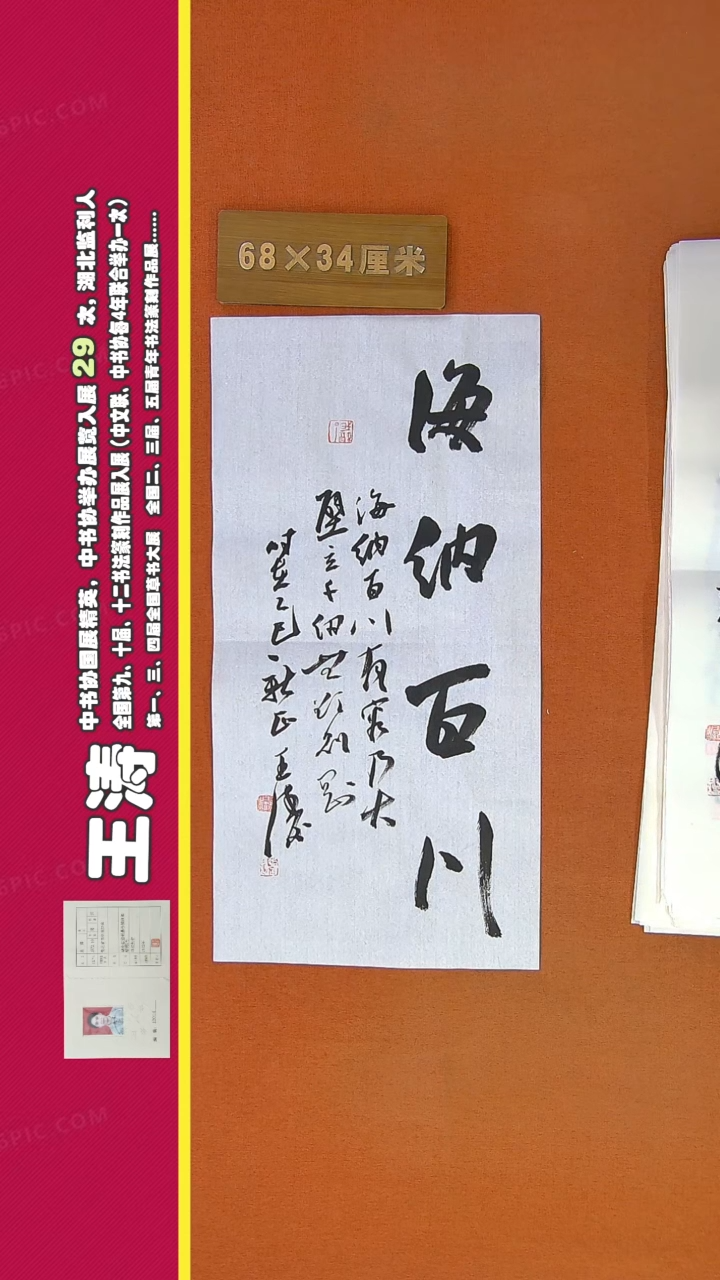 王涛
中书协国展精英，中书协举办展览入展 29 次，湖北监利人
全国第九、十届、十二书法篆刻作品展入展（中文联、中书协每4年联合举办一次）
第一、三、四届全国草书大展 全国二、三届、五届青年书法篆刻作品展......
68×34厘米
海纳百川
海纳百川有容乃大
壁立千仞无欲则刚
时在乙巳新正王涛